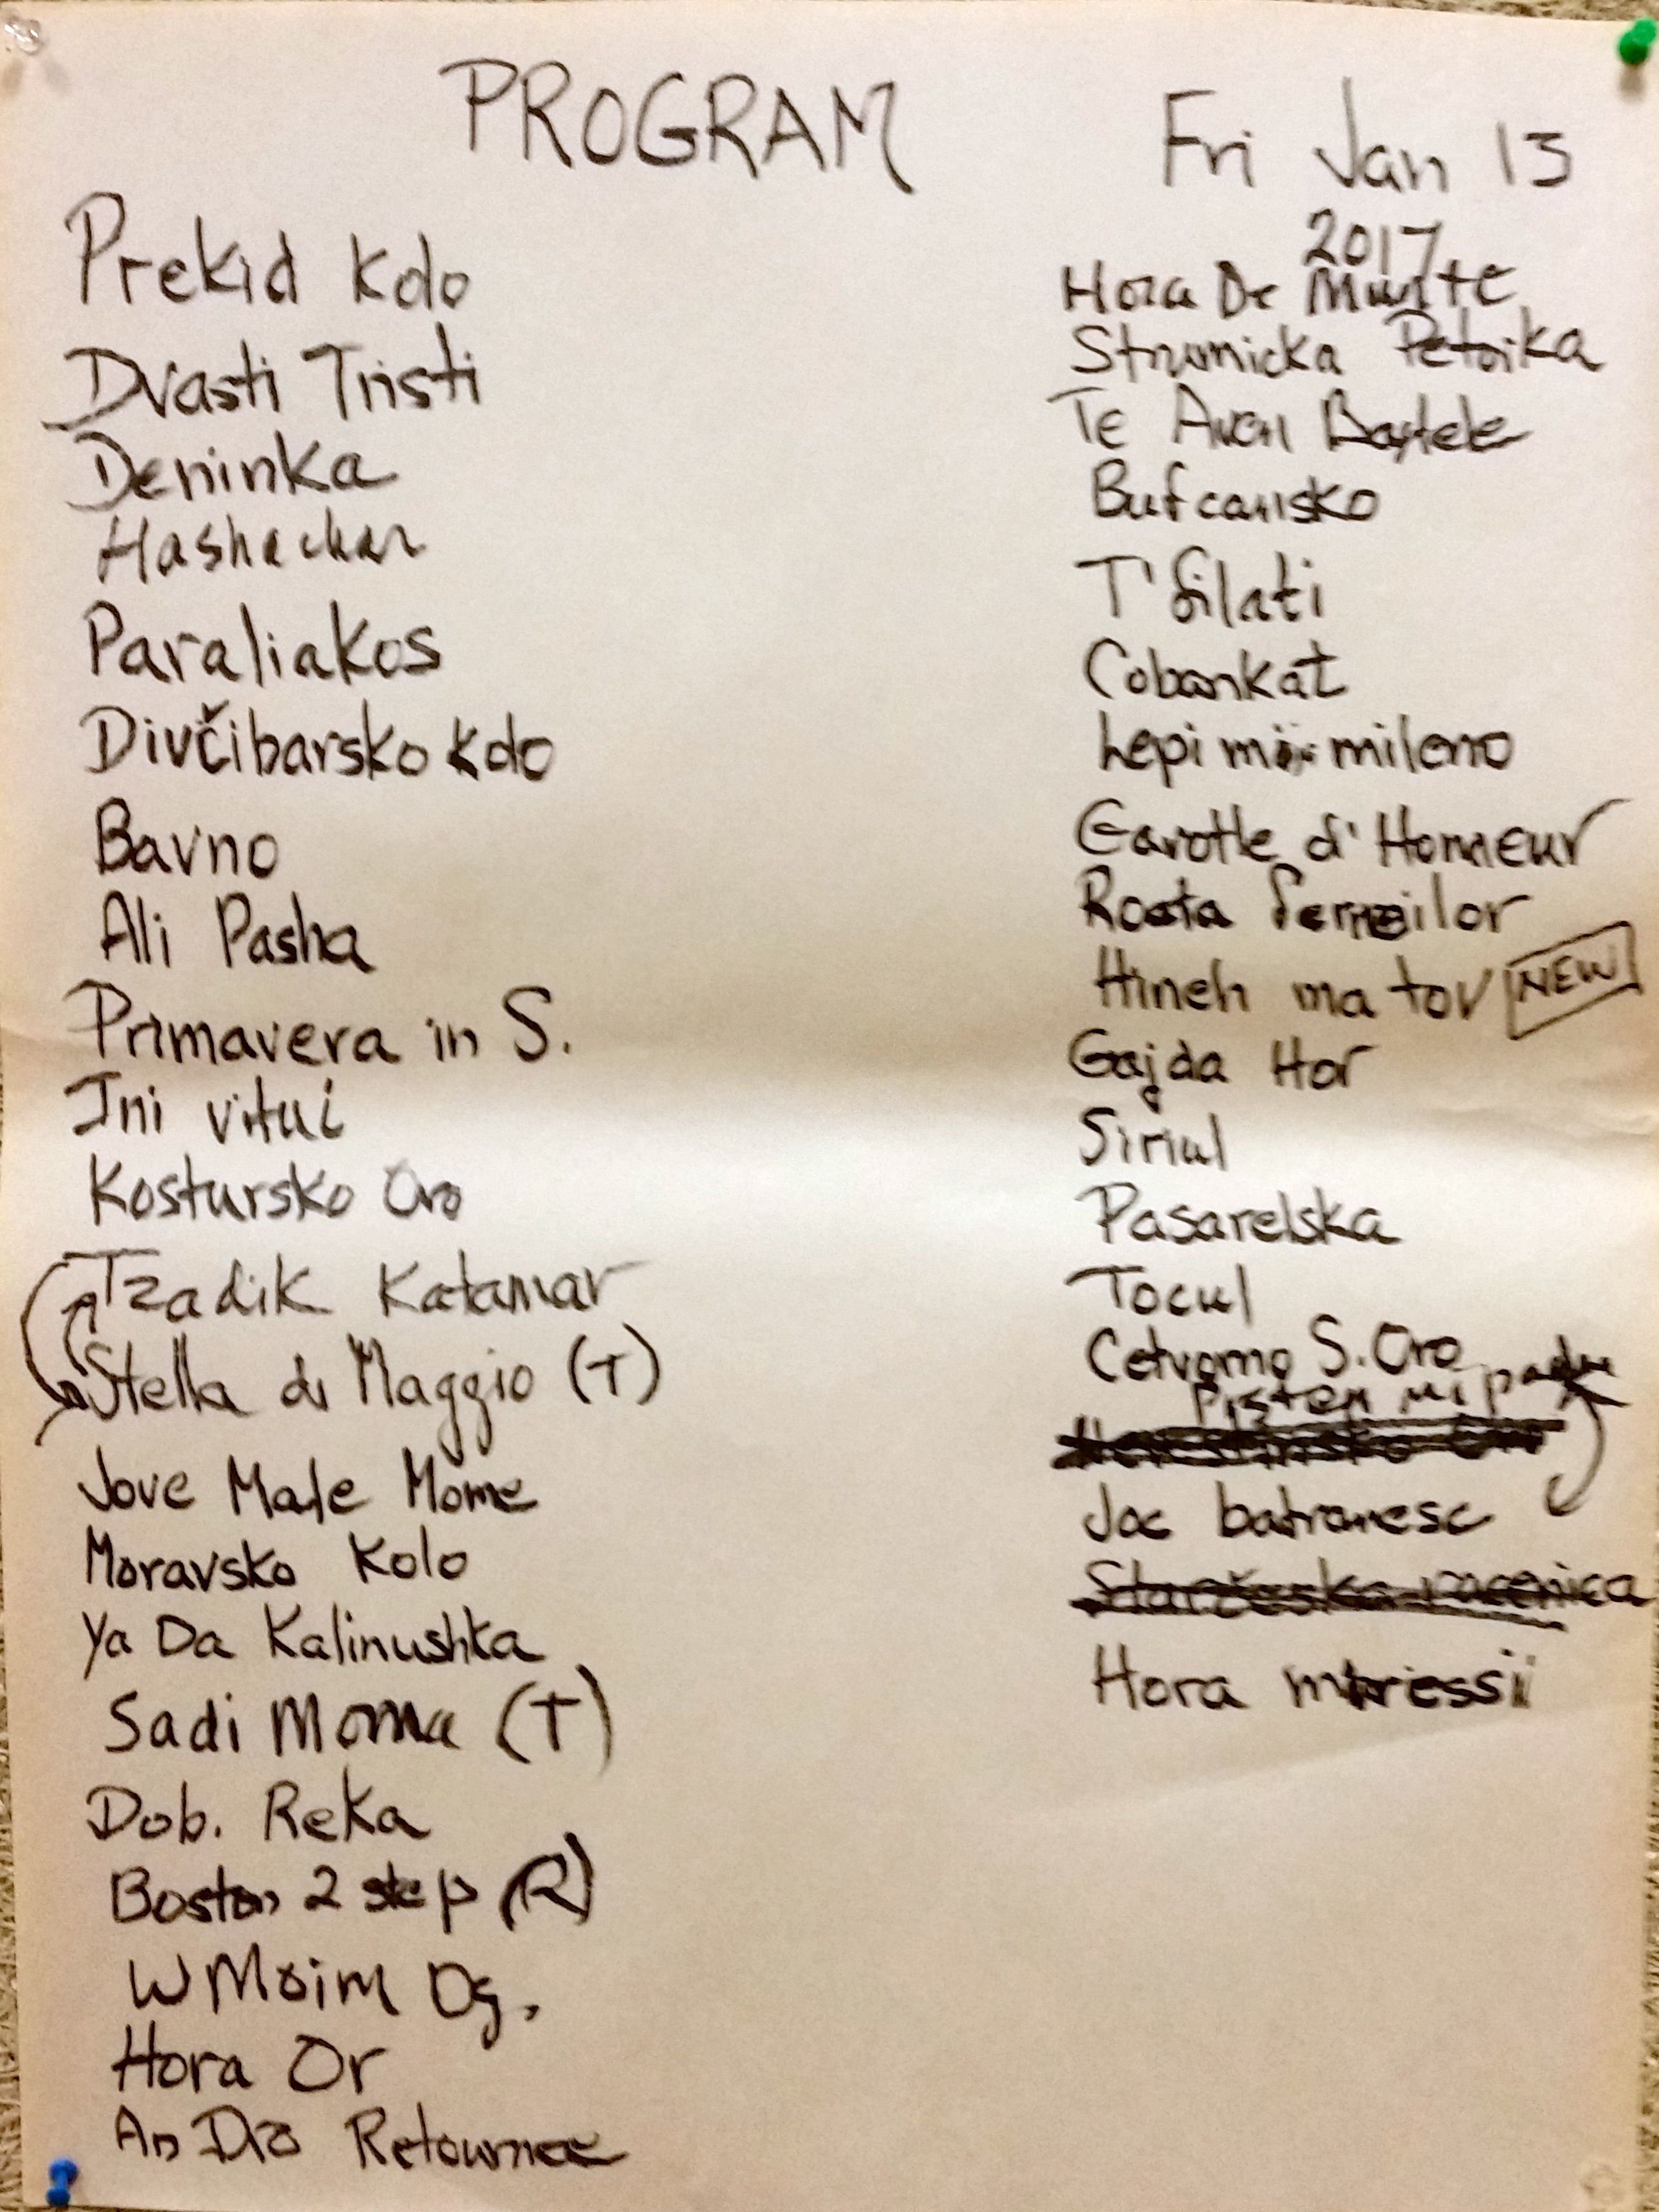 PROGRAM
Fri Jan 13
2017
Prekid Kolo
Dvasti Tristi
Deninka
Hashachar
Paraliakos
Divčibarsko Kolo
Bavno
Ali Pasha
Primavera in S.
Ini vitui
Kostursko Oro
Tzadik Katamar
Stella di Maggio (T)
Jove Male Mome
Moravsko Kolo
Ya Da Kalinushka
Sadi Moma (T)
Dob. Reka
Boston 2 step (R)
W Moim Og.
Hora Or
An Dro Retournee
Hora De Munte
Strumicka Petorka
Te Aven Baxtele
Bufcansko
T'filati
Cobankat
Lepi mileno
Gavotte d'Honneur
Roata femeilor
Hineh ma tov NEW
Gajda Hor
Sirul
Pasarelska
Tocul
Cetvorno S. Oro
Joc batranesc
Hora miresii